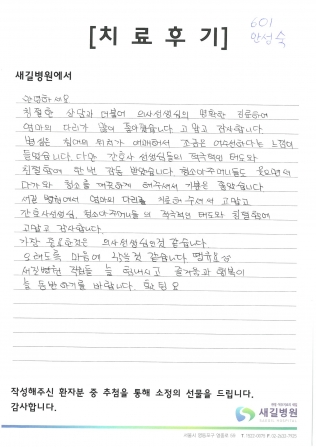 601
안성숙
[치 료 후 기]
새길병원에서
안녕하세요
친절한 상담과 더불어 의사선생님의 명확한 진료하여
엄마의 다리가 많이 좋아졌습니다. 고맙고 감사합니다
병실은 침대의 위치가 애매해서 조금은 어수선하다는 느낌이
들었습니다. 다만 간호사 선생님들의 적극적인 태도와
친절함에 한번 감동 받았습니다. 청소아주머니들도 웃으면서
다가와 청소를 깨끗하게 해주셔서 기분은 좋았습니다
새길 병원에서 엄마의 다리를 치료해주셔서 고맙고
간호사선생님, 청소아주머니들의 적극적인 태도와 친절함에
고맙고 감사합니다.
가장 중요한것은 의사선생님인것 같습니다.
오래도록 마음에 남을것 같습니다.
새길병원 직원들 늘 힘내시고 즐거움과 행복이
늘 동반하기를 바랍니다.
작성해주신 환자분 중 추첨을 통해 소정의 선물을 드립니다.
감사합니다.
새길병원
SAEGIL HOSPITAL